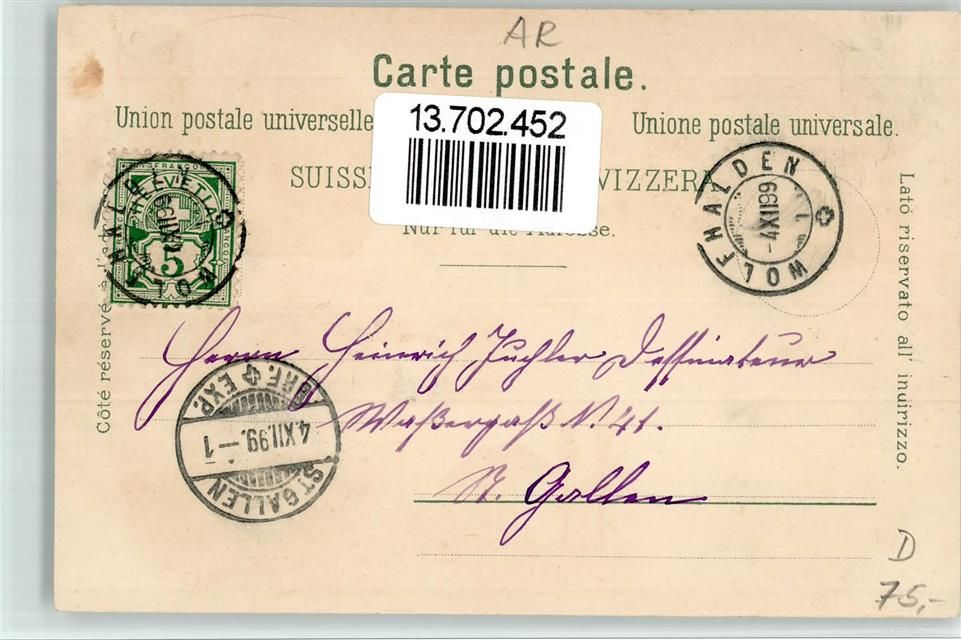 AR
Carte postale.
13.702.452
Union postale universelle
Unione postale universale.
SUISSE
SVIZZERA
Nur für die Adresse.
Côté réservé à l'adresse
Lato riservato all' indirizzo.
HELVETIA
5
WOLFHALDEN
4 XII 99
WOLFHALDEN
4 XII 99
Herrn Heinrich Juchler Dessinateur
Waßergaß N. 41.
St. Gallen
BRF. EXP.
4.XII.99.–1
ST. GALLEN
D
75,-